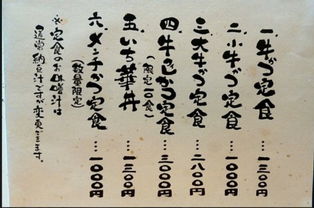 一.牛かつ定食…一三〇〇円
二.小牛かつ定食…一〇〇〇円
三.大牛かつ定食…二八〇〇円
四.牛ヒレかつ定食…三〇〇〇円
五.いち華丼…一三〇〇円
六.メンチかつ定食…一〇〇〇円
(数量限定)
※定食のお味噌汁は
通常納豆汁ですが変更できます。